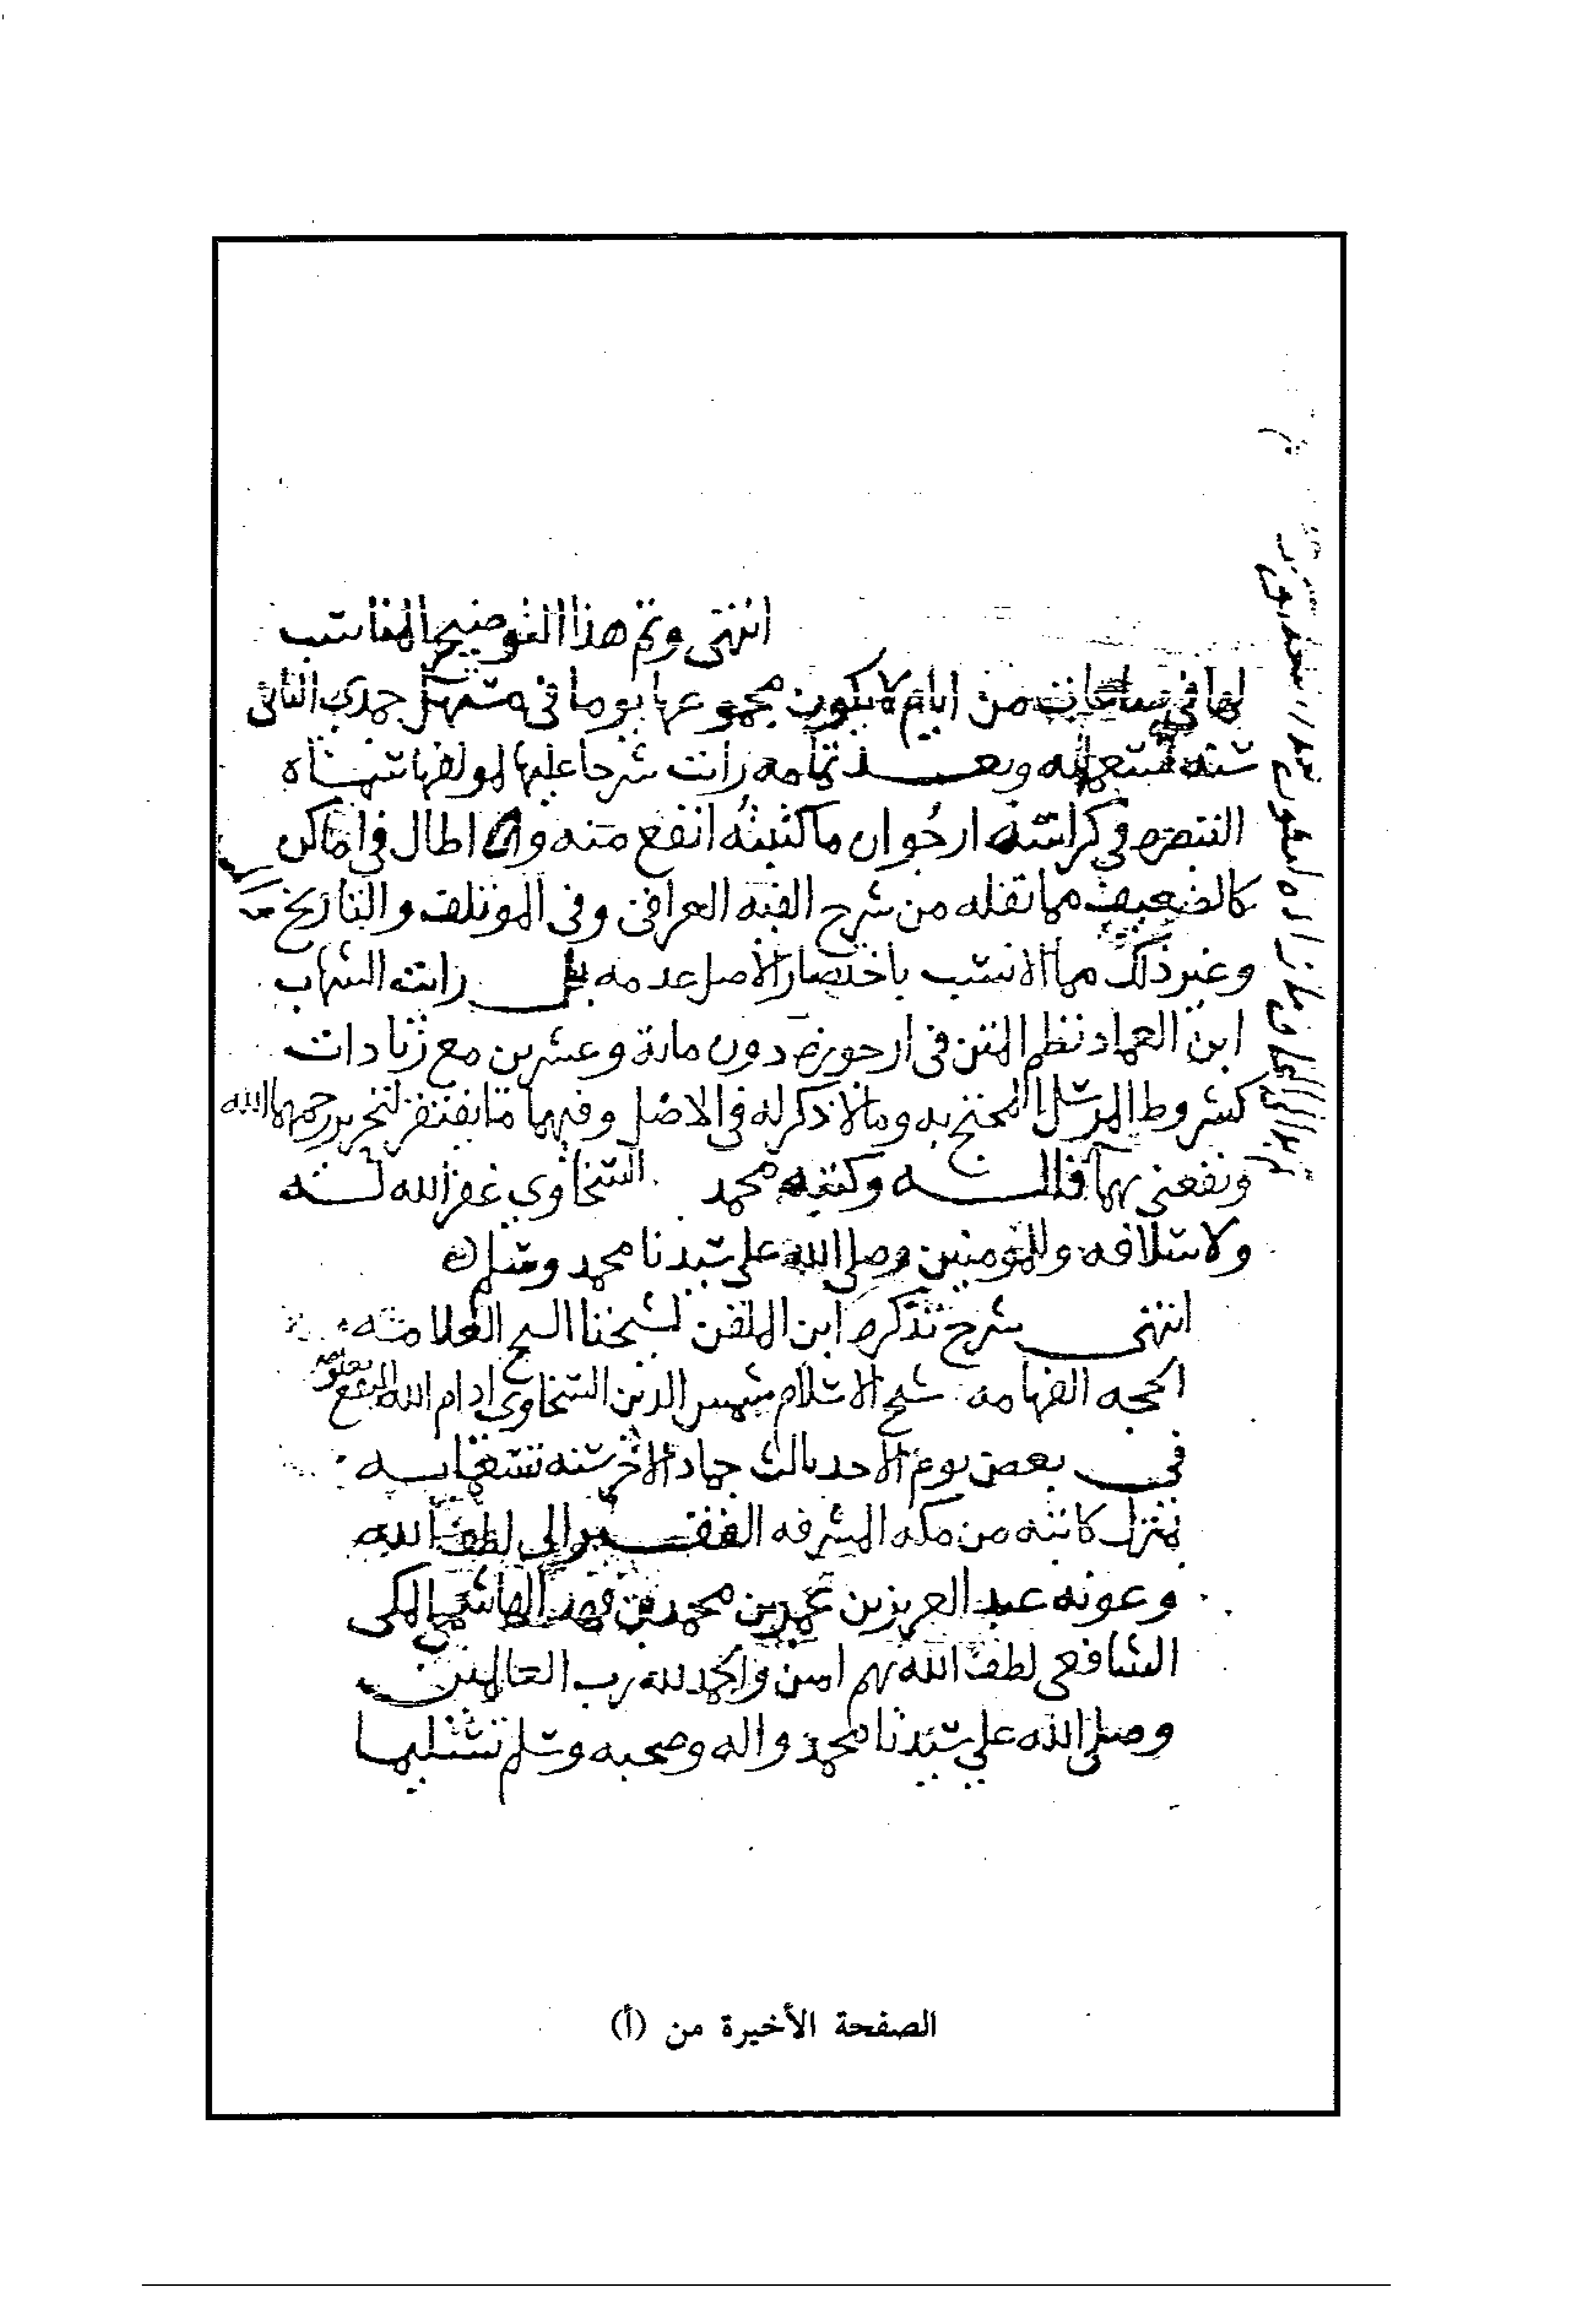 انتهى وتم هذا التوضيح المناسب
لها في ساعات من ايام لا يكون مجموعها يوما في مستهل جمدى الثاني
سنة تسعمايه وبعد تمامه رايت شرحا عليها لمولفها سماه
التبصره في كراسة ارجو ان ما كتبته انفع منه وان اطال في اماكن
كالضعيف مما نقله من شرح الفيه العراقي وفي الموتلف والتاريخ
وغير ذلك مما الانسب باختصار الاصل عدمه بل رايت الشهاب
ابن العماد نظم المتن في ارجوزه دون مائة وعشرين مع زيادات
كشروط المرسل المحتج به وما لا ذكر له في الاصل وفيهما ما يفتقر لتحرير رحمهما الله
ونفعني بهما قاله وكتبه محمد السخاوي غفر الله له
ولاسلافه وللمومنين وصلى الله على سيدنا محمد وسلم
انتهى شرح تذكره ابن الملقن لشيخنا الشيخ العلامه
الحجه الفهامه شيخ الاسلام شمس الدين السخاوي ادام الله النفع بعلومه
في بعض يوم الاحد ثالث جماد الاخر سنه تسعمايه
بمنزل كاتبه من مكه المشرفه الفقير الى لطف الله
وعونه عبد العزيز بن عمر بن محمد بن فهد الهاشمي المكي
الشافعي لطف الله بهم امين والحمد لله رب العالمين
وصلى الله على سيدنا محمد واله وصحبه وسلم تسليما
الصفحة الأخيرة من (أ)